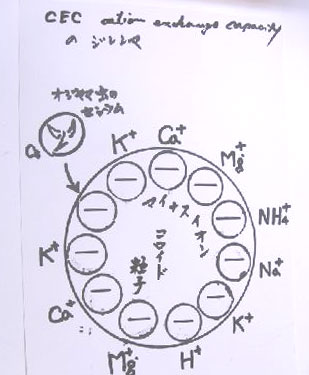 CEC cation exchange capacity
の ジレンマ
オジャマ虫の
セシウム
Cs
K⁺
Ca⁺
Mg⁺
NH₄⁺
Na⁺
K⁺
H⁺
Mg⁺
Ca⁺
K⁺
マイナスイオン
コロイド
粒子